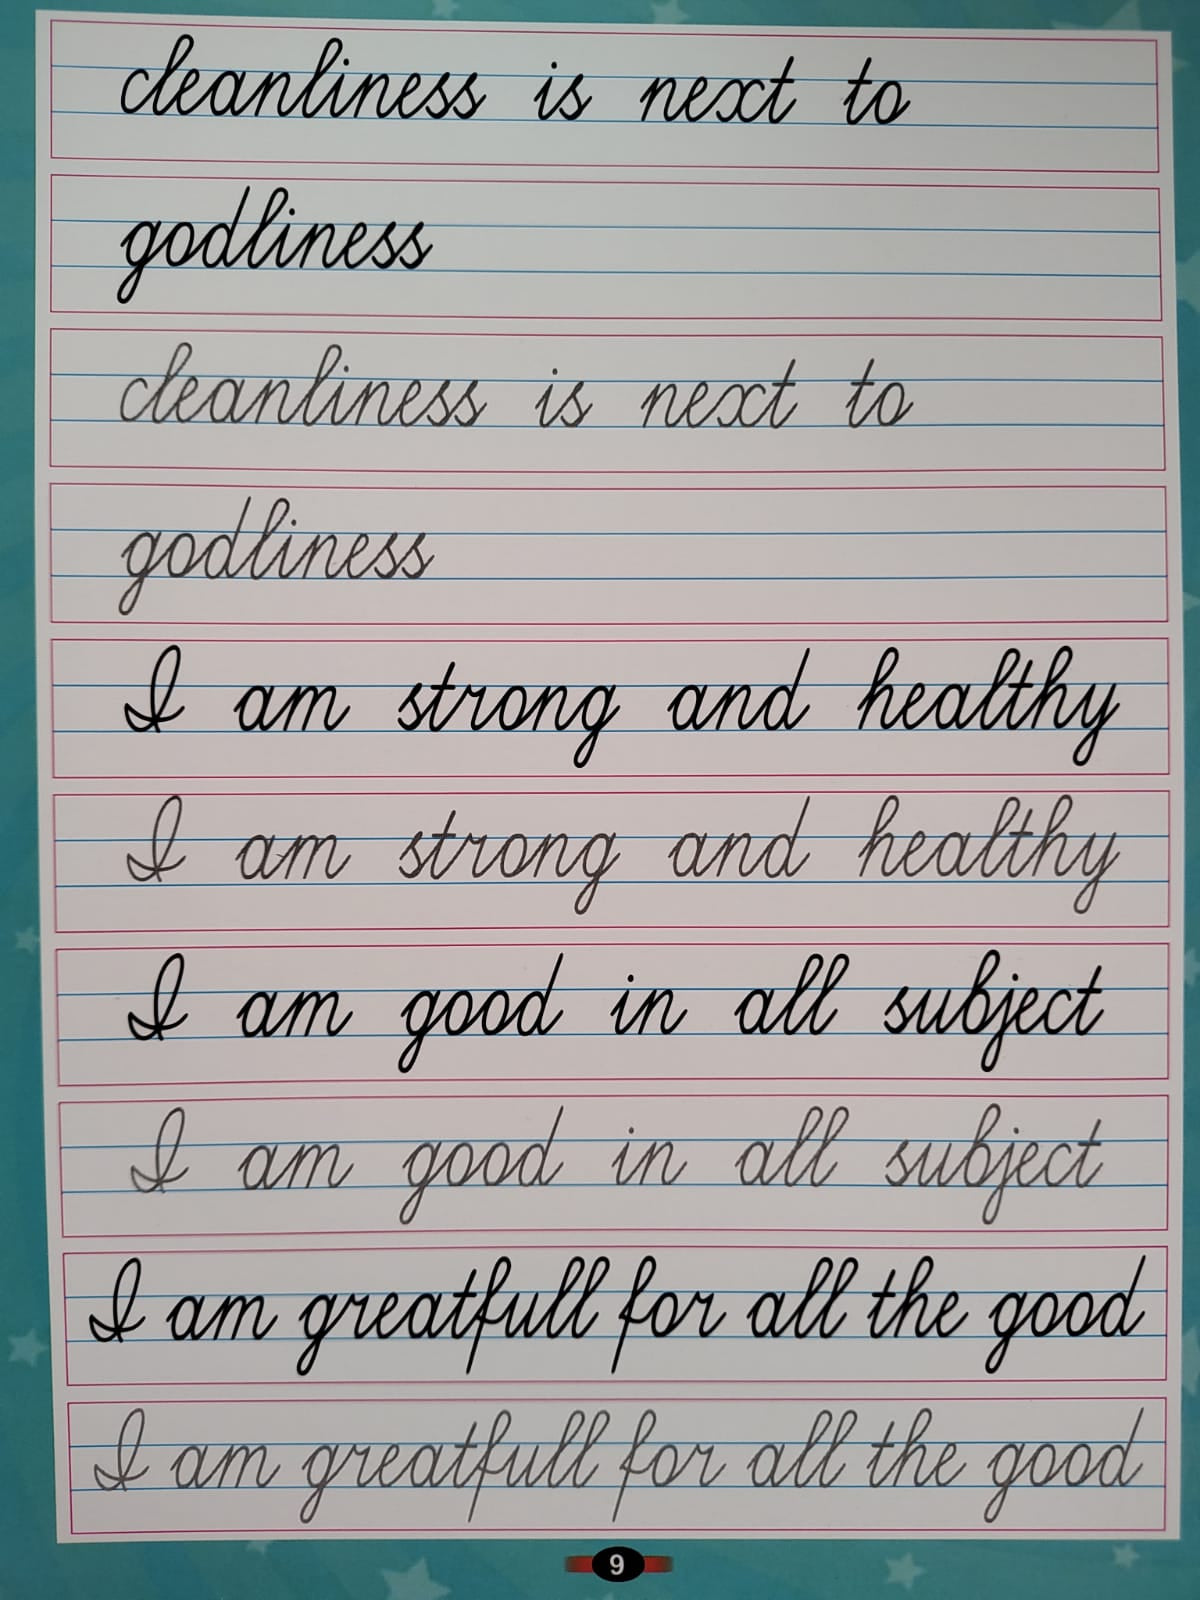 cleanliness is next to
godliness
cleanliness is next to
godliness
I am strong and healthy
I am strong and healthy
I am good in all subject
I am good in all subject
I am greatfull for all the good
I am greatfull for all the good
9